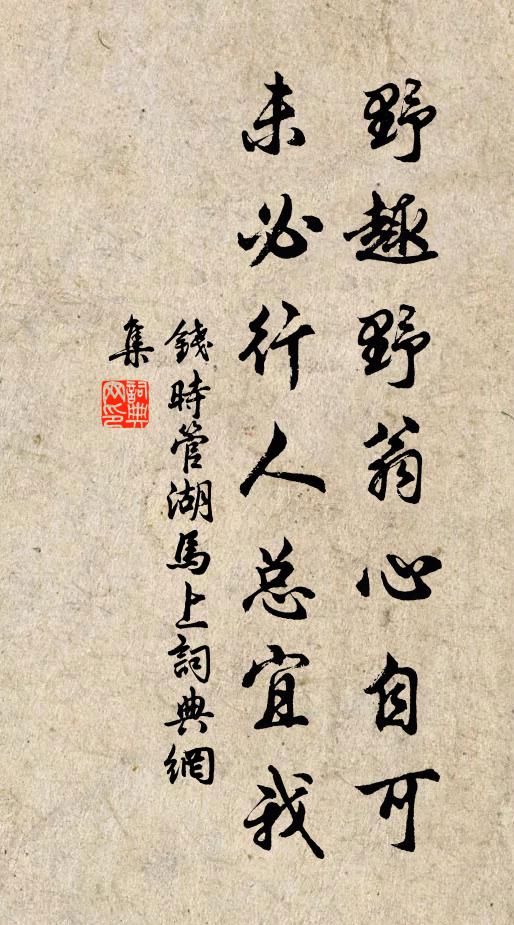 野趣野翁心自可
未必行人总宜我
錢時管湖馬上詞典網
集
詞典網印